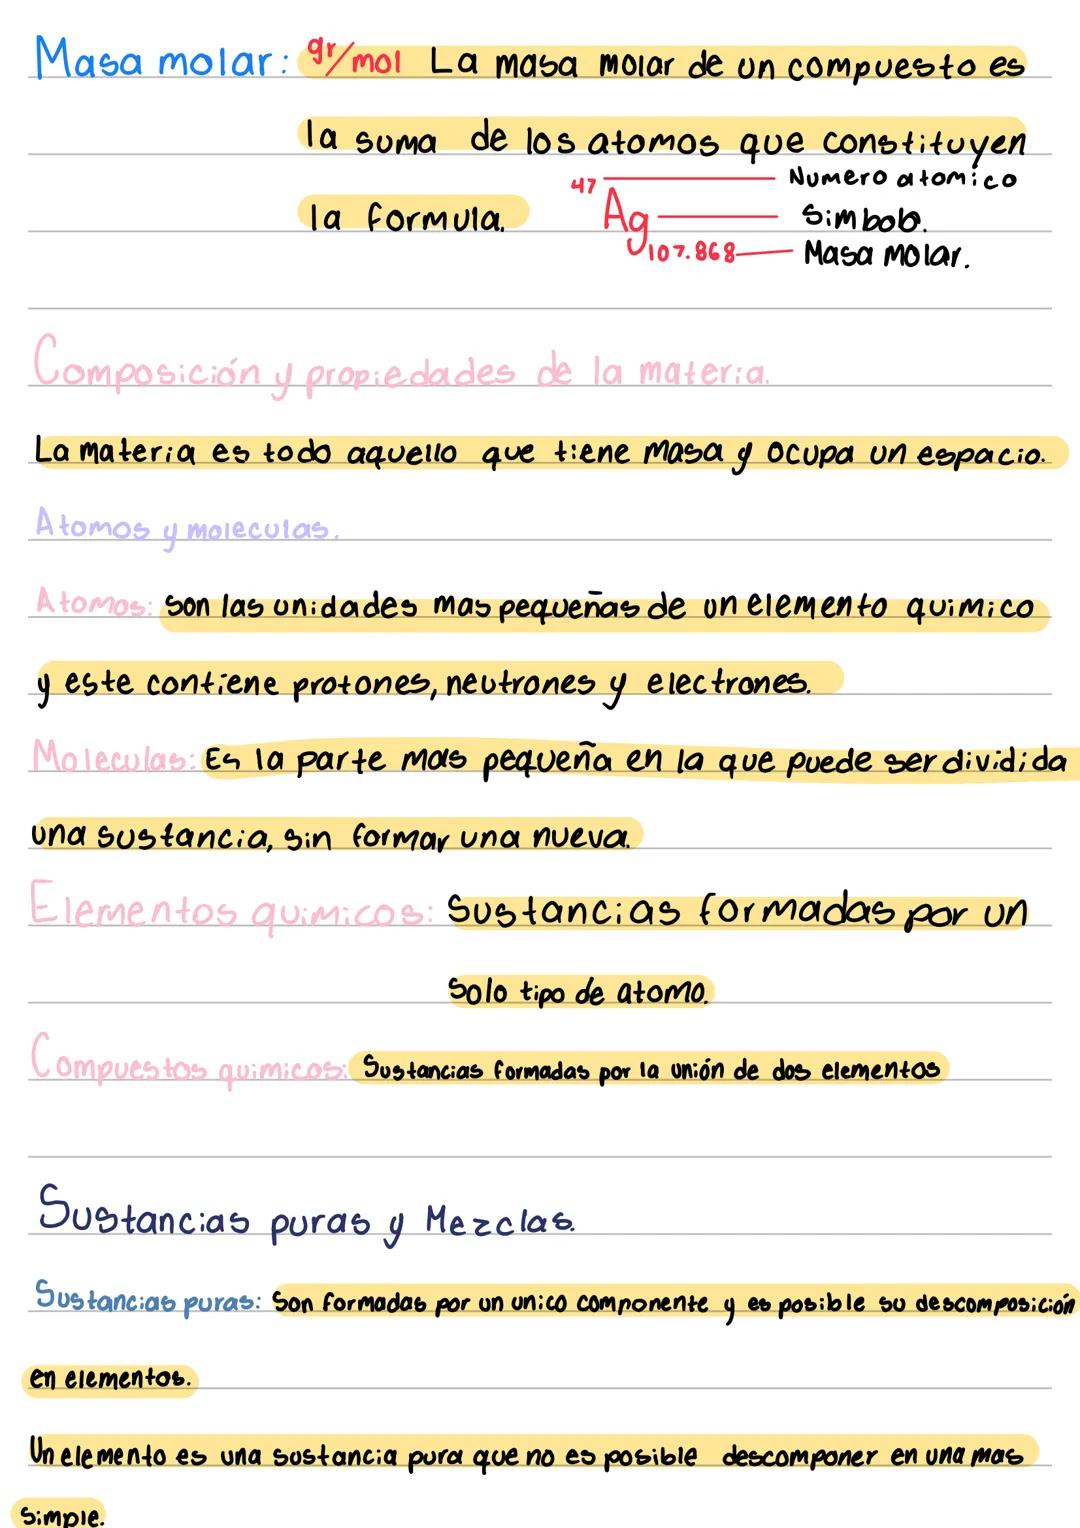 Masa molar: gr/mol La masa molar de un compuesto es
la suma de los atomos que constituyen
la formula.
47 Numero atomico
Ag Simbolo.
107.868 Masa molar.
Composición y propiedades de la materia.
La materia es todo aquello que tiene masa y ocupa un espacio.
Atomos y moleculas.
Atomos: Son las unidades mas pequeñas de un elemento quimico
y este contiene protones, neutrones y electrones.
Moleculas: Es la parte mas pequeña en la que puede ser dividida
una sustancia, sin formar una nueva.
Elementos quimicos: Sustancias formadas por un
solo tipo de atomo.
Compuestos quimicos: Sustancias formadas por la unión de dos elementos
Sustancias puras y Mezclas.
Sustancias puras: Son formadas por un unico componente y es posible su descomposición
en elementos.
Un elemento es una sustancia pura que no es posible descomponer en una mas
simple.